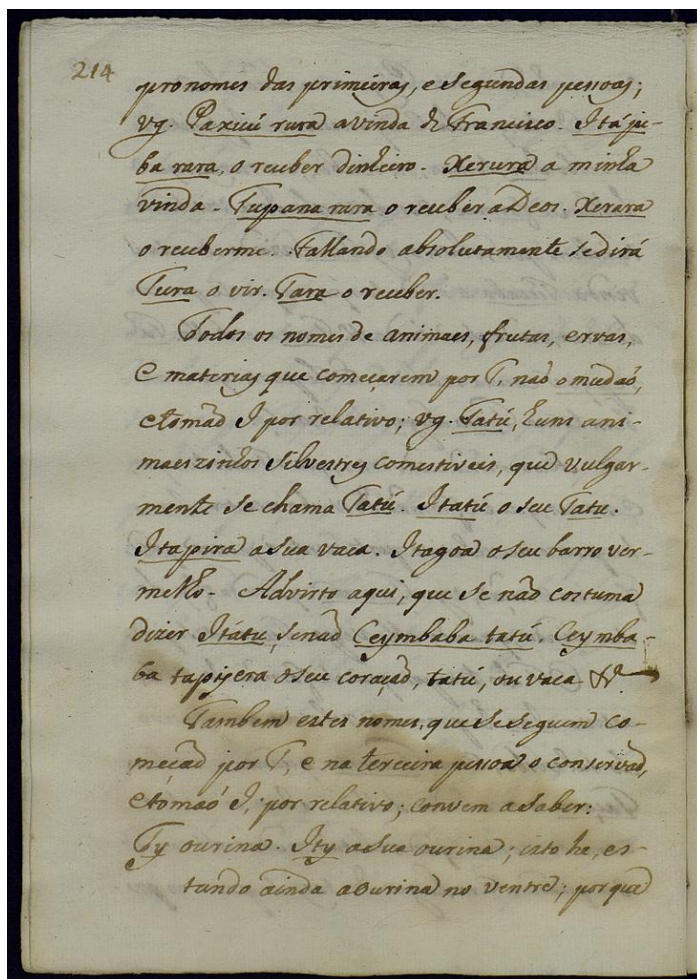 214
pronomes das primeiras, e segundas pessoas;
vg. Paxicú rura a vinda de Francisco. Itáju-
ba rara, o receber dinheiro. Xerura a minha
vinda. Tupana rara o receber a Deos. Xerara
o receberme. Fallando absolutamente se dirá
Tura o vir. Tara o receber.
Todos os nomes de animaes, frutas, ervas,
e materias que começarem por T, naõ o mudaõ,
e tomaõ I por relativo; vg. Tatú, huns ani-
maeszinhos silvestres comestiveis, que vulgar-
mente se chama Tatú. Itatú o seu Tatu.
Itapira a sua vaca. Itagoa o seu barro ver-
melho. Advirto aqui, que se naõ costuma
dizer Itátu, senaõ Ceymbaba tatú. Ceymba-
ba tapijera o seu coraçaõ, tatú, ou vaca &c
Tambem estes nomes, que se seguem co-
meçaõ por T, e na terceira pessoa o conservaõ,
e tomaõ I, por relativo; convem a saber:
Ty ourina. Ity a sua ourina; isto he, es-
tando ainda a ourina no ventre; porque